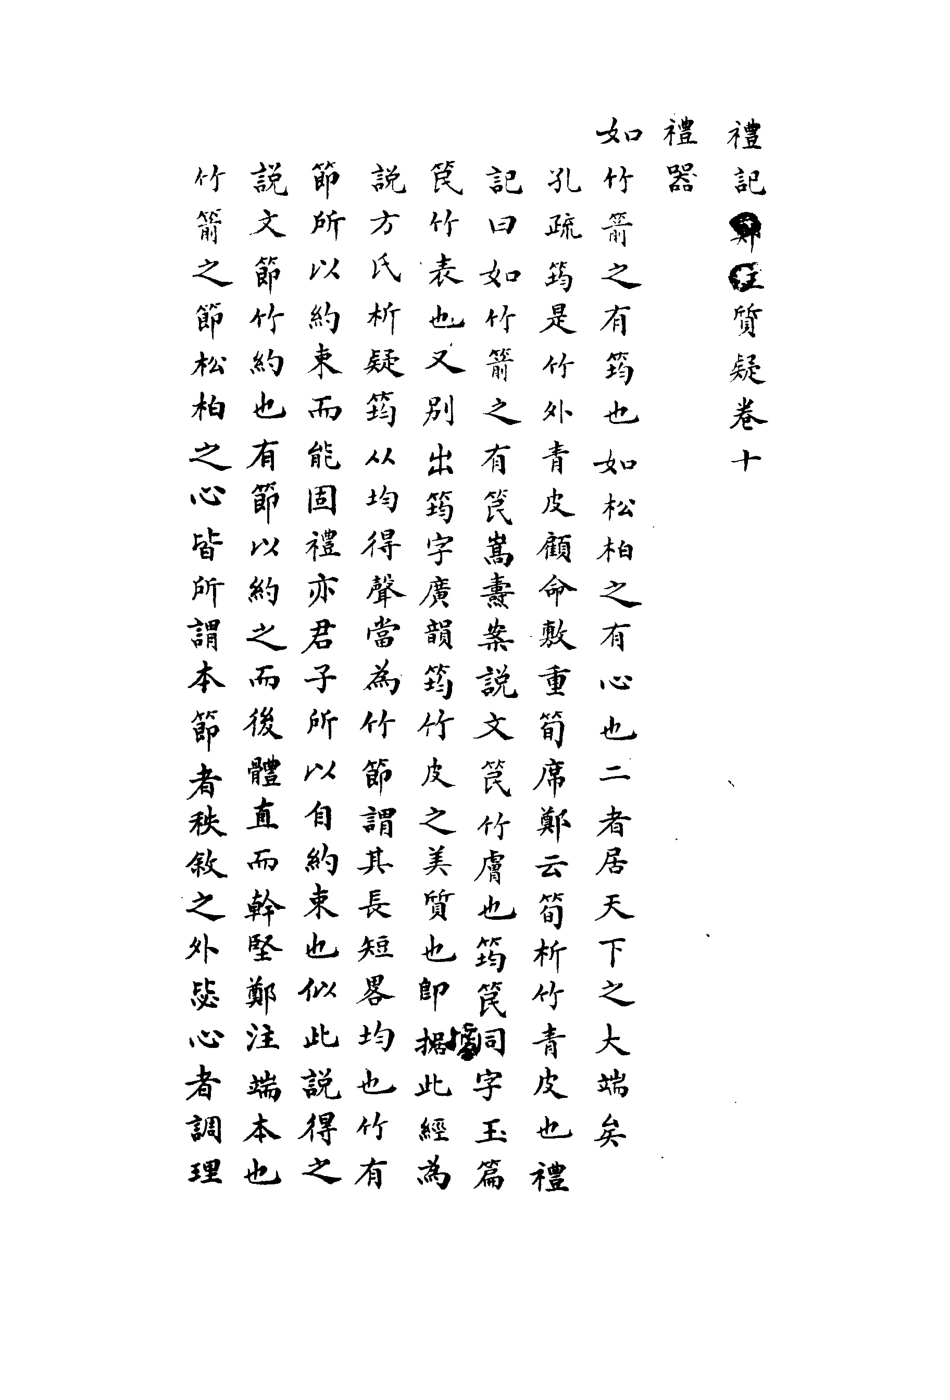 禮記鄭注質疑卷十
禮器
如竹箭之有筠也如松柏之有心也二者居天下之大端矣
孔疏筠是竹外青皮顧命敷重筍席鄭云筍析竹青皮也禮
記曰如竹箭之有笢嵩燾案說文笢竹膚也筠笢同字玉篇
笢竹表也又別出筠字廣韻筠竹皮之美質也卽據此經為
說方氏析疑筠从均得聲當為竹節謂其長短畧均也竹有
節所以約束而能固禮亦君子所以自約束也似此説得之
説文節竹約也有節以約之而後體直而幹堅鄭注端本也
竹箭之節松柏之心皆所謂本節者秩敘之外毖心者調理